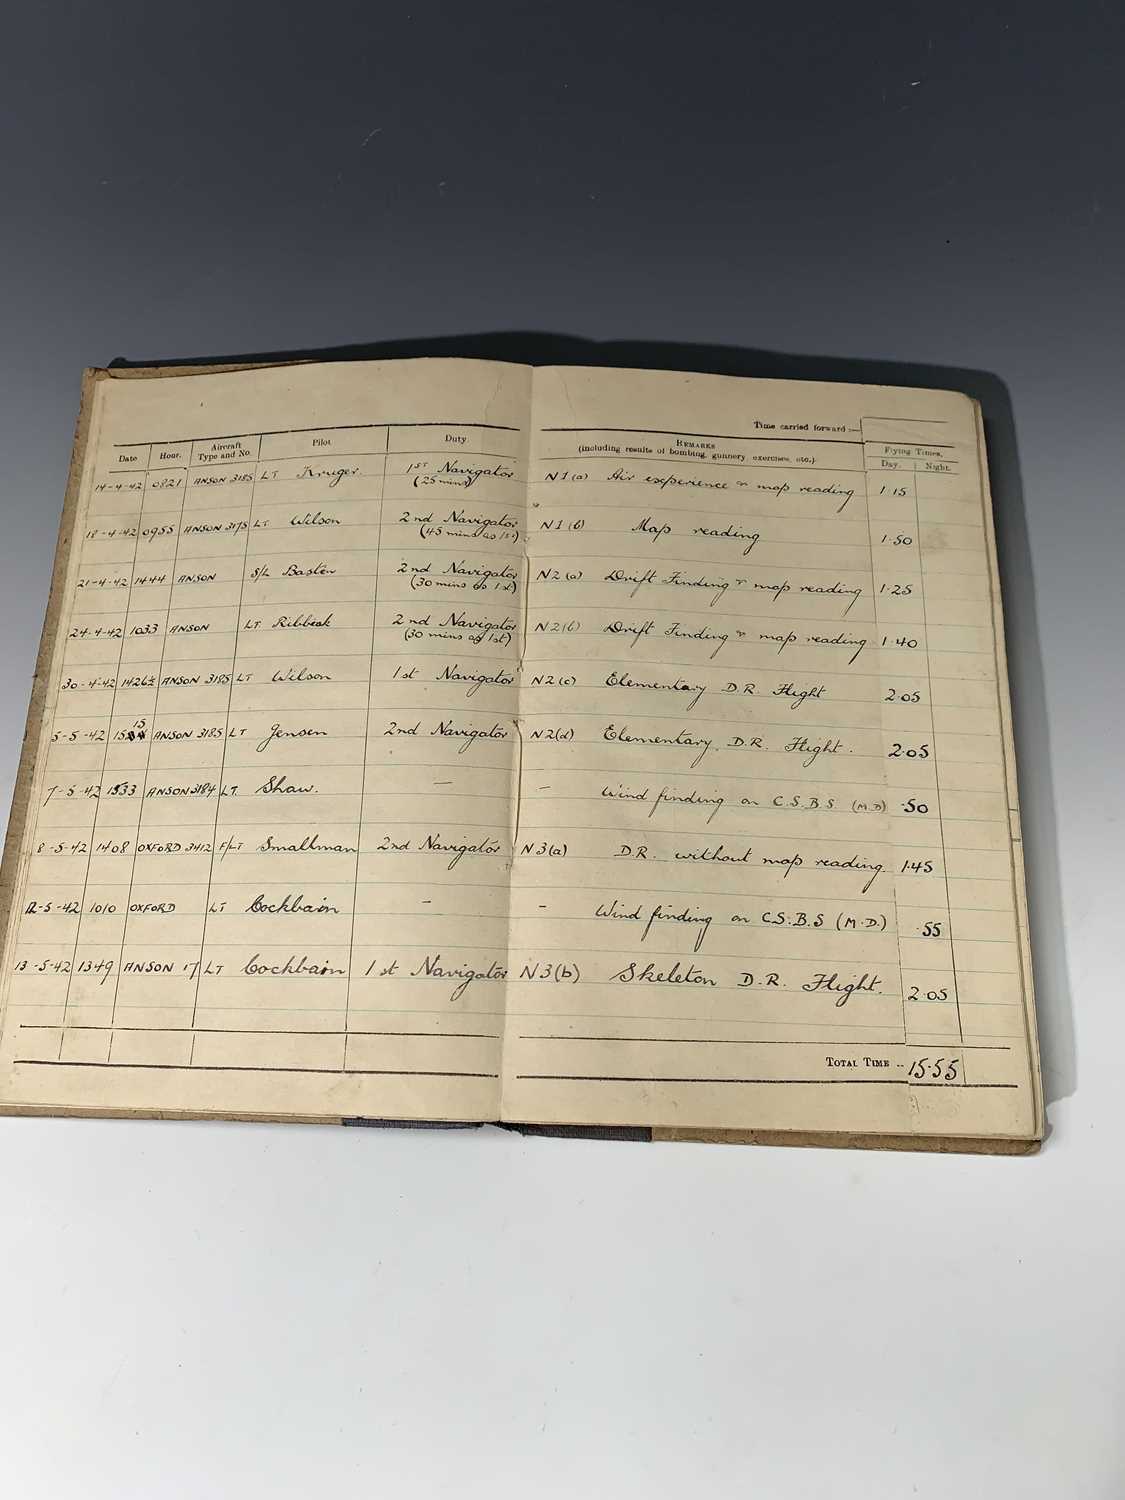 Time carried forward :—
Date Hour. Aircraft Type and No. Pilot Duty REMARKS (including results of bombing, gunnery, exercises, etc.) Flying Times. Day. Night.
14-4-42 0821 ANSON 3185 LT Kruger. 1ST Navigator N1(a) Air experience & map reading 1.15
(25 mins)
18-4-42 0955 ANSON 3175 LT Wilson 2nd Navigator N1(b) Map reading 1.50
(45 mins as 1st)
21-4-42 1444 ANSON S/L Basten 2nd Navigator N2(a) Drift Finding & map reading 1.25
(30 mins as 1st)
24-4-42 1033 ANSON LT. Ribbeck 2nd Navigator N2(b) Drift Finding & map reading 1.40
(30 mins as 1st)
30-4-42 1426½ ANSON 3185 LT Wilson 1st Navigator N2(c) Elementary D.R. Flight 2.05
5-5-42 1515 ANSON 3185 LT Jensen 2nd Navigator N2(d) Elementary D.R. Flight. 2.05
7-5-42 1533 ANSON 3184 LT. Shaw. — — Wind finding on C.S.B.S (M.D) .50
8-5-42 1408 OXFORD 3412 F/LT Smallman 2nd Navigator N3(a) D.R. without map reading. 1.45
12-5-42 1010 OXFORD LT Cockbain — — Wind finding on C.S.B.S (M.D.) .55
13-5-42 1349 ANSON 17 LT Cockbain 1st Navigator N3(b) Skeleton D.R. Flight. 2.05
TOTAL TIME .. 15.55